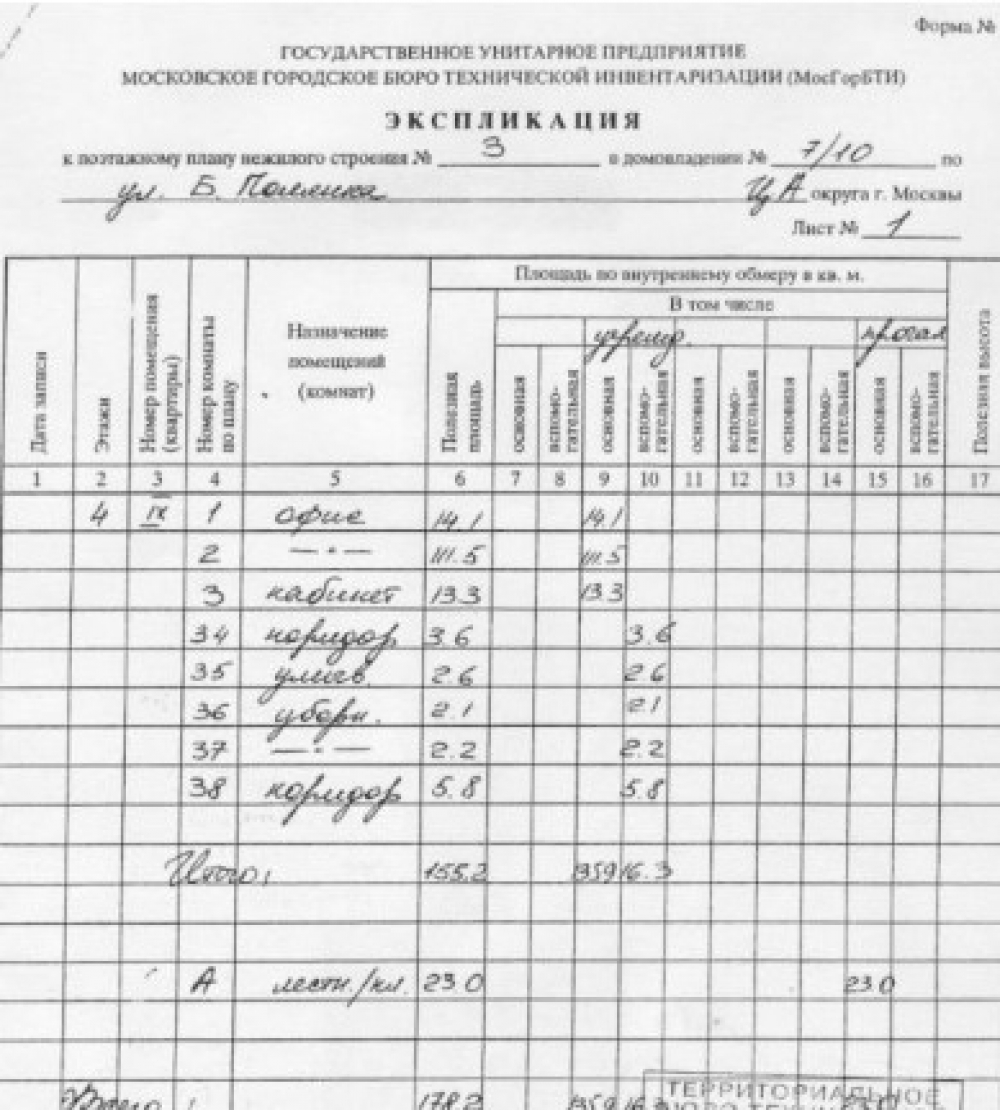 Форма №
ГОСУДАРСТВЕННОЕ УНИТАРНОЕ ПРЕДПРИЯТИЕ
МОСКОВСКОЕ ГОРОДСКОЕ БЮРО ТЕХНИЧЕСКОЙ ИНВЕНТАРИЗАЦИИ (МосГорБТИ)
ЭКСПЛИКАЦИЯ
к поэтажному плану нежилого строения № 3 в домовладении № 7/10 по
ул. Б. Полянка ЦА округа г. Москвы
Лист № 1
Дата записи
Этажи
Номер помещения (квартиры)
Номер комнаты по плану
Назначение помещений (комнат)
Площадь по внутреннему обмеру в кв. м.
Полезная площадь
В том числе
учрежд. прочая
основная вспомогательная основная вспомогательная основная вспомогательная основная вспомогательная основная вспомогательная
Полезная высота
1 2 3 4 5 6 7 8 9 10 11 12 13 14 15 16 17
4 IX 1 офис 14.1 14.1
2 — " — 111.5 111.5
3 кабинет 13.3 13.3
34 коридор 3.6 3.6
35 умыв. 2.6 2.6
36 уборн. 2.1 2.1
37 — " — 2.2 2.2
38 коридор 5.8 5.8
Итого: 155.2 1359 16.3
А лестн./кл. 23.0 23.0
Всего: 178.2 1359 16.3
ТЕРРИТОРИАЛЬНОЕ